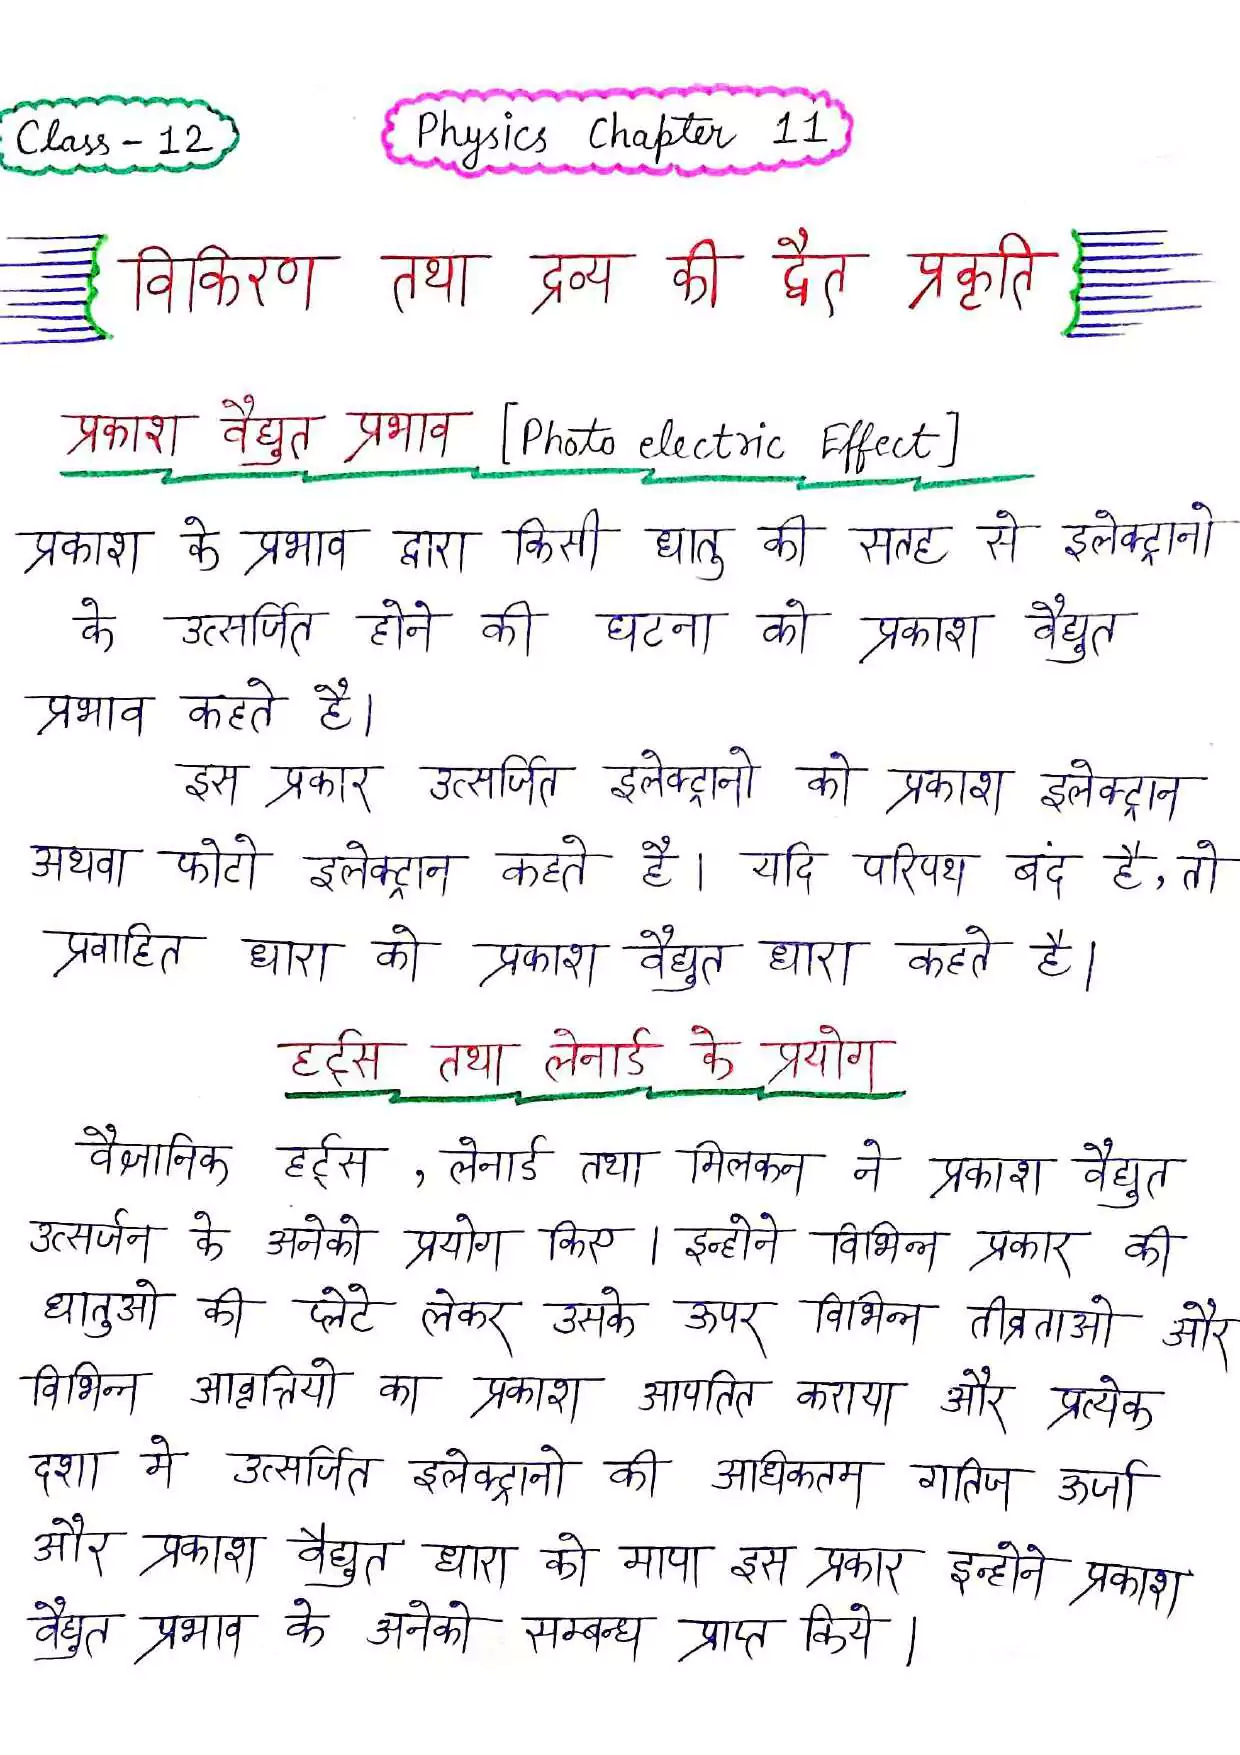 Class - 12
Physics Chapter 11
विकिरण तथा द्रव्य की द्वैत प्रकृति
प्रकाश वैद्युत प्रभाव [Photo electric Effect]
प्रकाश के प्रभाव द्वारा किसी धातु की सतह से इलेक्ट्रानो
के उत्सर्जित होने की घटना को प्रकाश वैद्युत
प्रभाव कहते है।
इस प्रकार उत्सर्जित इलेक्ट्रानो को प्रकाश इलेक्ट्रान
अथवा फोटो इलेक्ट्रान कहते है। यदि परिपथ बंद है, तो
प्रवाहित धारा को प्रकाश वैद्युत धारा कहते है।
हर्ट्स तथा लेनार्ड के प्रयोग
वैज्ञानिक हर्ट्स , लेनार्ड तथा मिलकन ने प्रकाश वैद्युत
उत्सर्जन के अनेको प्रयोग किए । इन्होने विभिन्न प्रकार की
धातुओ की प्लेटे लेकर उसके ऊपर विभिन्न तीव्रताओ और
विभिन्न आवृत्तियो का प्रकाश आपतित कराया और प्रत्येक
दशा मे उत्सर्जित इलेक्ट्रानो की अधिकतम गतिज ऊर्जा
और प्रकाश वैद्युत धारा को मापा इस प्रकार इन्होने प्रकाश
वैद्युत प्रभाव के अनेको सम्बन्ध प्राप्त किये ।